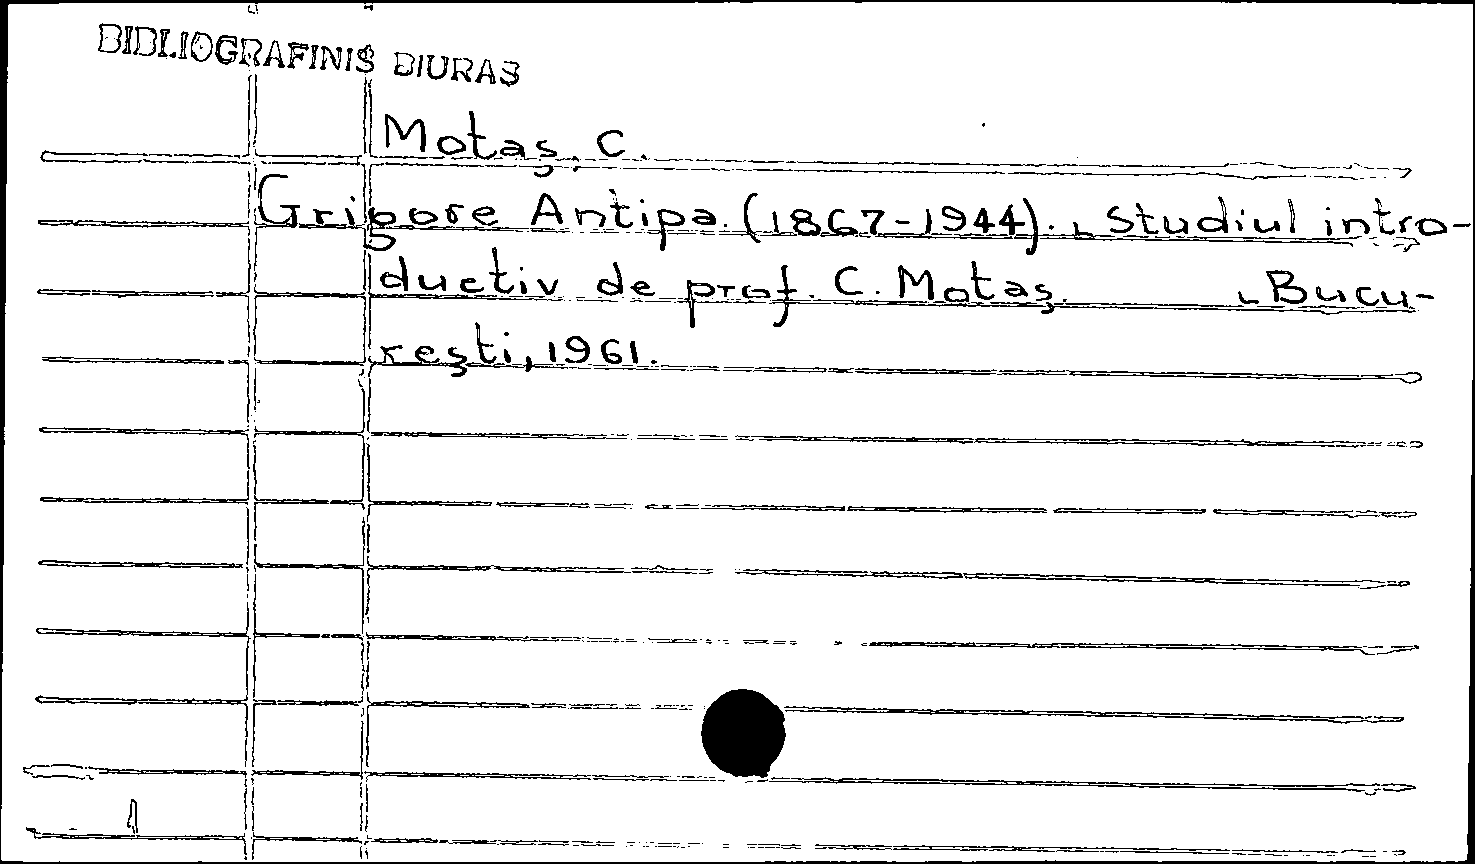 BIBLIOGRAFINIS BIURAS
Motaş, C.
Grigore Antipa. (1867-1944). Studiul intro-
ductiv de prof. C. Motaş. Bucu-
reşti, 1961.